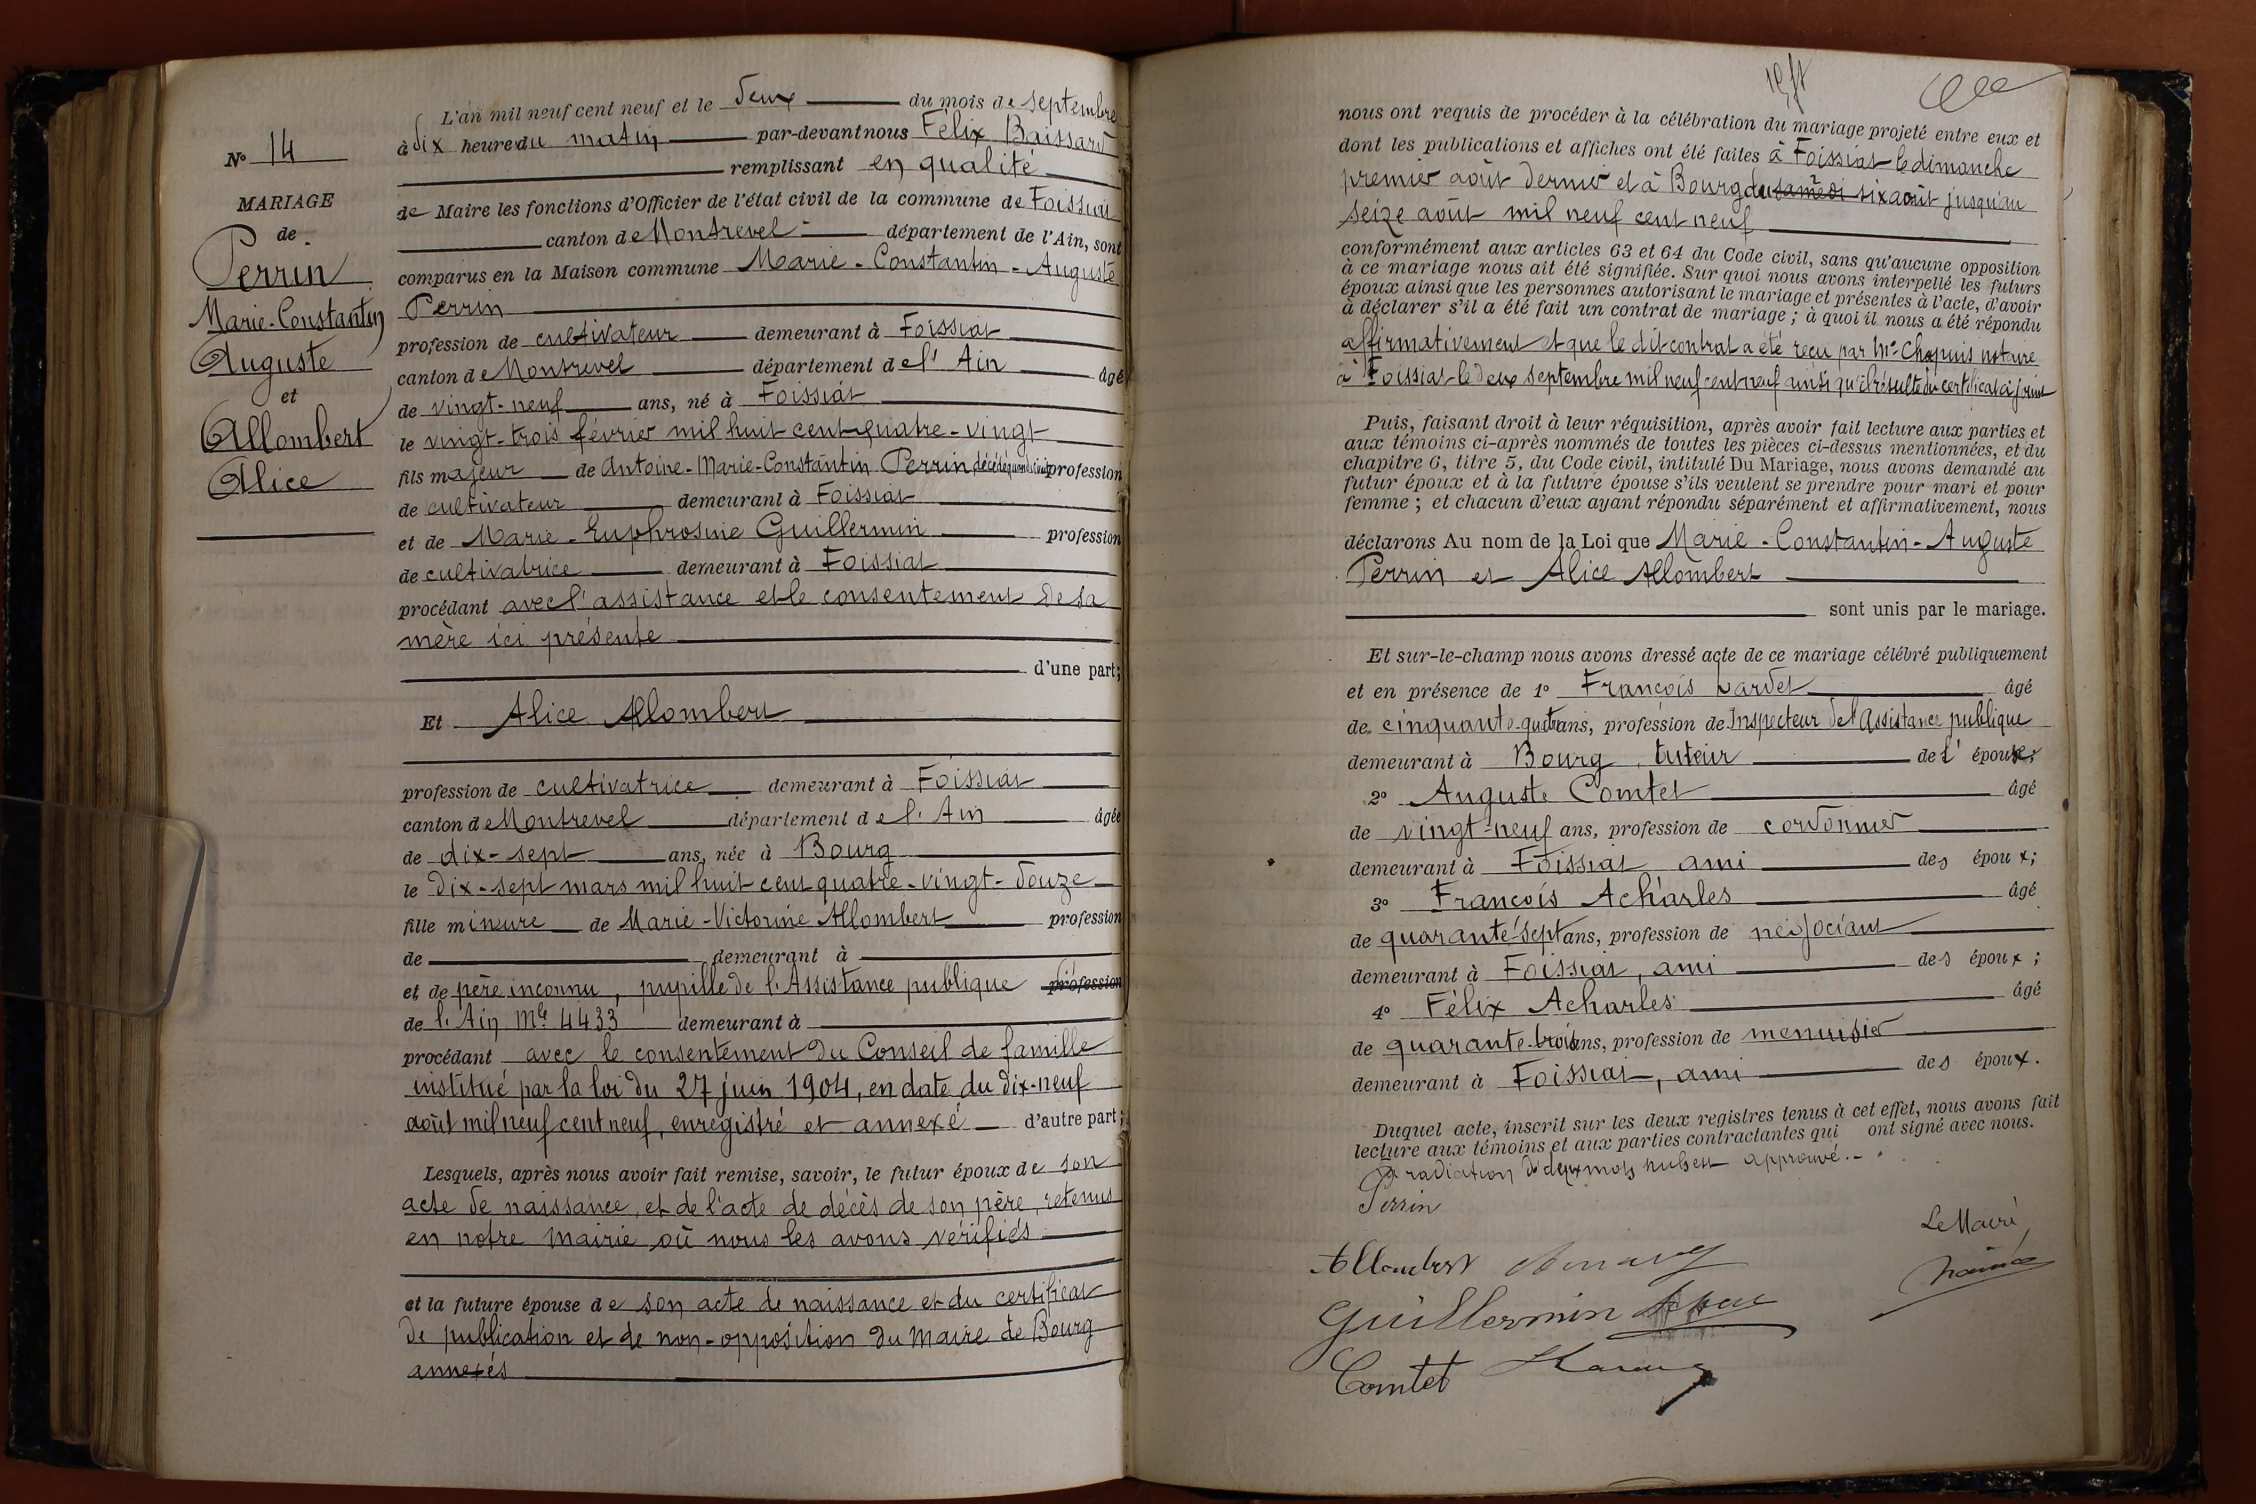 N° 14
MARIAGE
de
Perrin
Marie-Constantin
Auguste
et
Allombert
Alice
L'an mil neuf cent neuf et le deux du mois de septembre
à dix heure du matin par-devant nous Félix Baissard
remplissant en qualité
de Maire les fonctions d'Officier de l'état civil de la commune de Foissiat
canton de Montrevel département de l'Ain, sont
comparus en la Maison commune Marie-Constantin-Auguste
Perrin
profession de cultivateur demeurant à Foissiat
canton de Montrevel département de l'Ain âgé
de vingt-neuf ans, né à Foissiat
le vingt-trois février mil huit cent quatre-vingt
fils majeur de Antoine-Marie-Constantin Perrin décédé quand vivait profession
de cultivateur demeurant à Foissiat
et de Marie-Euphrosine Guillermin profession
de cultivatrice demeurant à Foissiat
procédant avec l'assistance et le consentement de sa
mère ici présente
d'une part;
Et Alice Allombert
profession de cultivatrice demeurant à Foissiat
canton de Montrevel département de l'Ain âgée
de dix-sept ans, née à Bourg
le dix-sept mars mil huit cent quatre-vingt-douze
fille mineure de Marie-Victorine Allombert profession
de demeurant à
et de père inconnu, pupille de l'Assistance publique profession
de l'Ain Mle 4433 demeurant à
procédant avec le consentement du Conseil de famille
institué par la loi du 27 juin 1904, en date du dix-neuf
août mil neuf cent neuf, enregistré et annexé d'autre part;
Lesquels, après nous avoir fait remise, savoir, le futur époux de son
acte de naissance, et de l'acte de décès de son père, retenus
en notre mairie où nous les avons vérifiés
et la future épouse de son acte de naissance et du certificat
de publication et de non-opposition du maire de Bourg
annexés
nous ont requis de procéder à la célébration du mariage projeté entre eux et
dont les publications et affiches ont été faites à Foissiat le dimanche
premier août dernier et à Bourg du samedi six août jusqu'au
seize août mil neuf cent neuf
conformément aux articles 63 et 64 du Code civil, sans qu'aucune opposition
à ce mariage nous ait été signifiée. Sur quoi nous avons interpellé les futurs
époux ainsi que les personnes autorisant le mariage et présentes à l'acte, d'avoir
à déclarer s'il a été fait un contrat de mariage; à quoi il nous a été répondu
affirmativement et que le dit contrat a été reçu par Me Chapuis notaire
à Foissiat le deux septembre mil neuf cent neuf ainsi qu'il résulte du certificat ci joint
Puis, faisant droit à leur réquisition, après avoir fait lecture aux parties et
aux témoins ci-après nommés de toutes les pièces ci-dessus mentionnées, et du
chapitre 6, titre 5, du Code civil, intitulé Du Mariage, nous avons demandé au
futur époux et à la future épouse s'ils veulent se prendre pour mari et pour
femme; et chacun d'eux ayant répondu séparément et affirmativement, nous
déclarons Au nom de la Loi que Marie-Constantin-Auguste
Perrin et Alice Allombert
sont unis par le mariage.
Et sur-le-champ nous avons dressé acte de ce mariage célébré publiquement
et en présence de 1° François Lardet âgé
de cinquante-quatre ans, profession de Inspecteur de l'Assistance publique
demeurant à Bourg, tuteur de l'épouse;
2° Auguste Comtet âgé
de vingt-neuf ans, profession de cordonnier
demeurant à Foissiat ami des époux;
3° François Acharles âgé
de quarante-sept ans, profession de négociant
demeurant à Foissiat, ami des époux;
4° Félix Acharles âgé
de quarante-trois ans, profession de menuisier
demeurant à Foissiat, ami des époux.
Duquel acte, inscrit sur les deux registres tenus à cet effet, nous avons fait
lecture aux témoins et aux parties contractantes qui ont signé avec nous.
radiation de deux mots nuls est approuvé.
Perrin
Le Maire
Allombert
Guillermin
Comtet